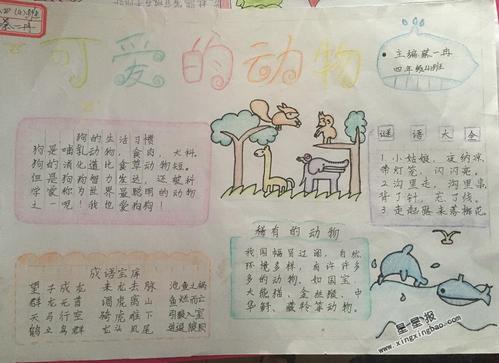 四(4)班
蔡一冉
可爱的动物
主编蔡一冉
四年级4班
狗的生活习惯
狗是哺乳动物，食肉，犬科。
狗的消化道比食草动物短。
但是狗狗智力发达，还被科
学家称为世界最聪明的动物
之一呢！我也爱狗狗！
谜语大全
1.小姑娘，夜纳凉，
带灯笼，闪闪亮。
2.沟里走，沟里串
背了针，忘了线。
3.走起路来落梅花。
稀有的动物
我国幅员辽阔，自然
环境多样，有许许多
多的动物，如国宝
大熊猫、金丝猴、中
华鲟、藏羚等动物。
成语宝库
望子成龙 来龙去脉 池鱼之祸
群龙无首 调虎离山 鱼烂而亡
天马行空 骑虎难下 引狼入室
鹤立鸡群 虎头
星星报
xingxingbao.com